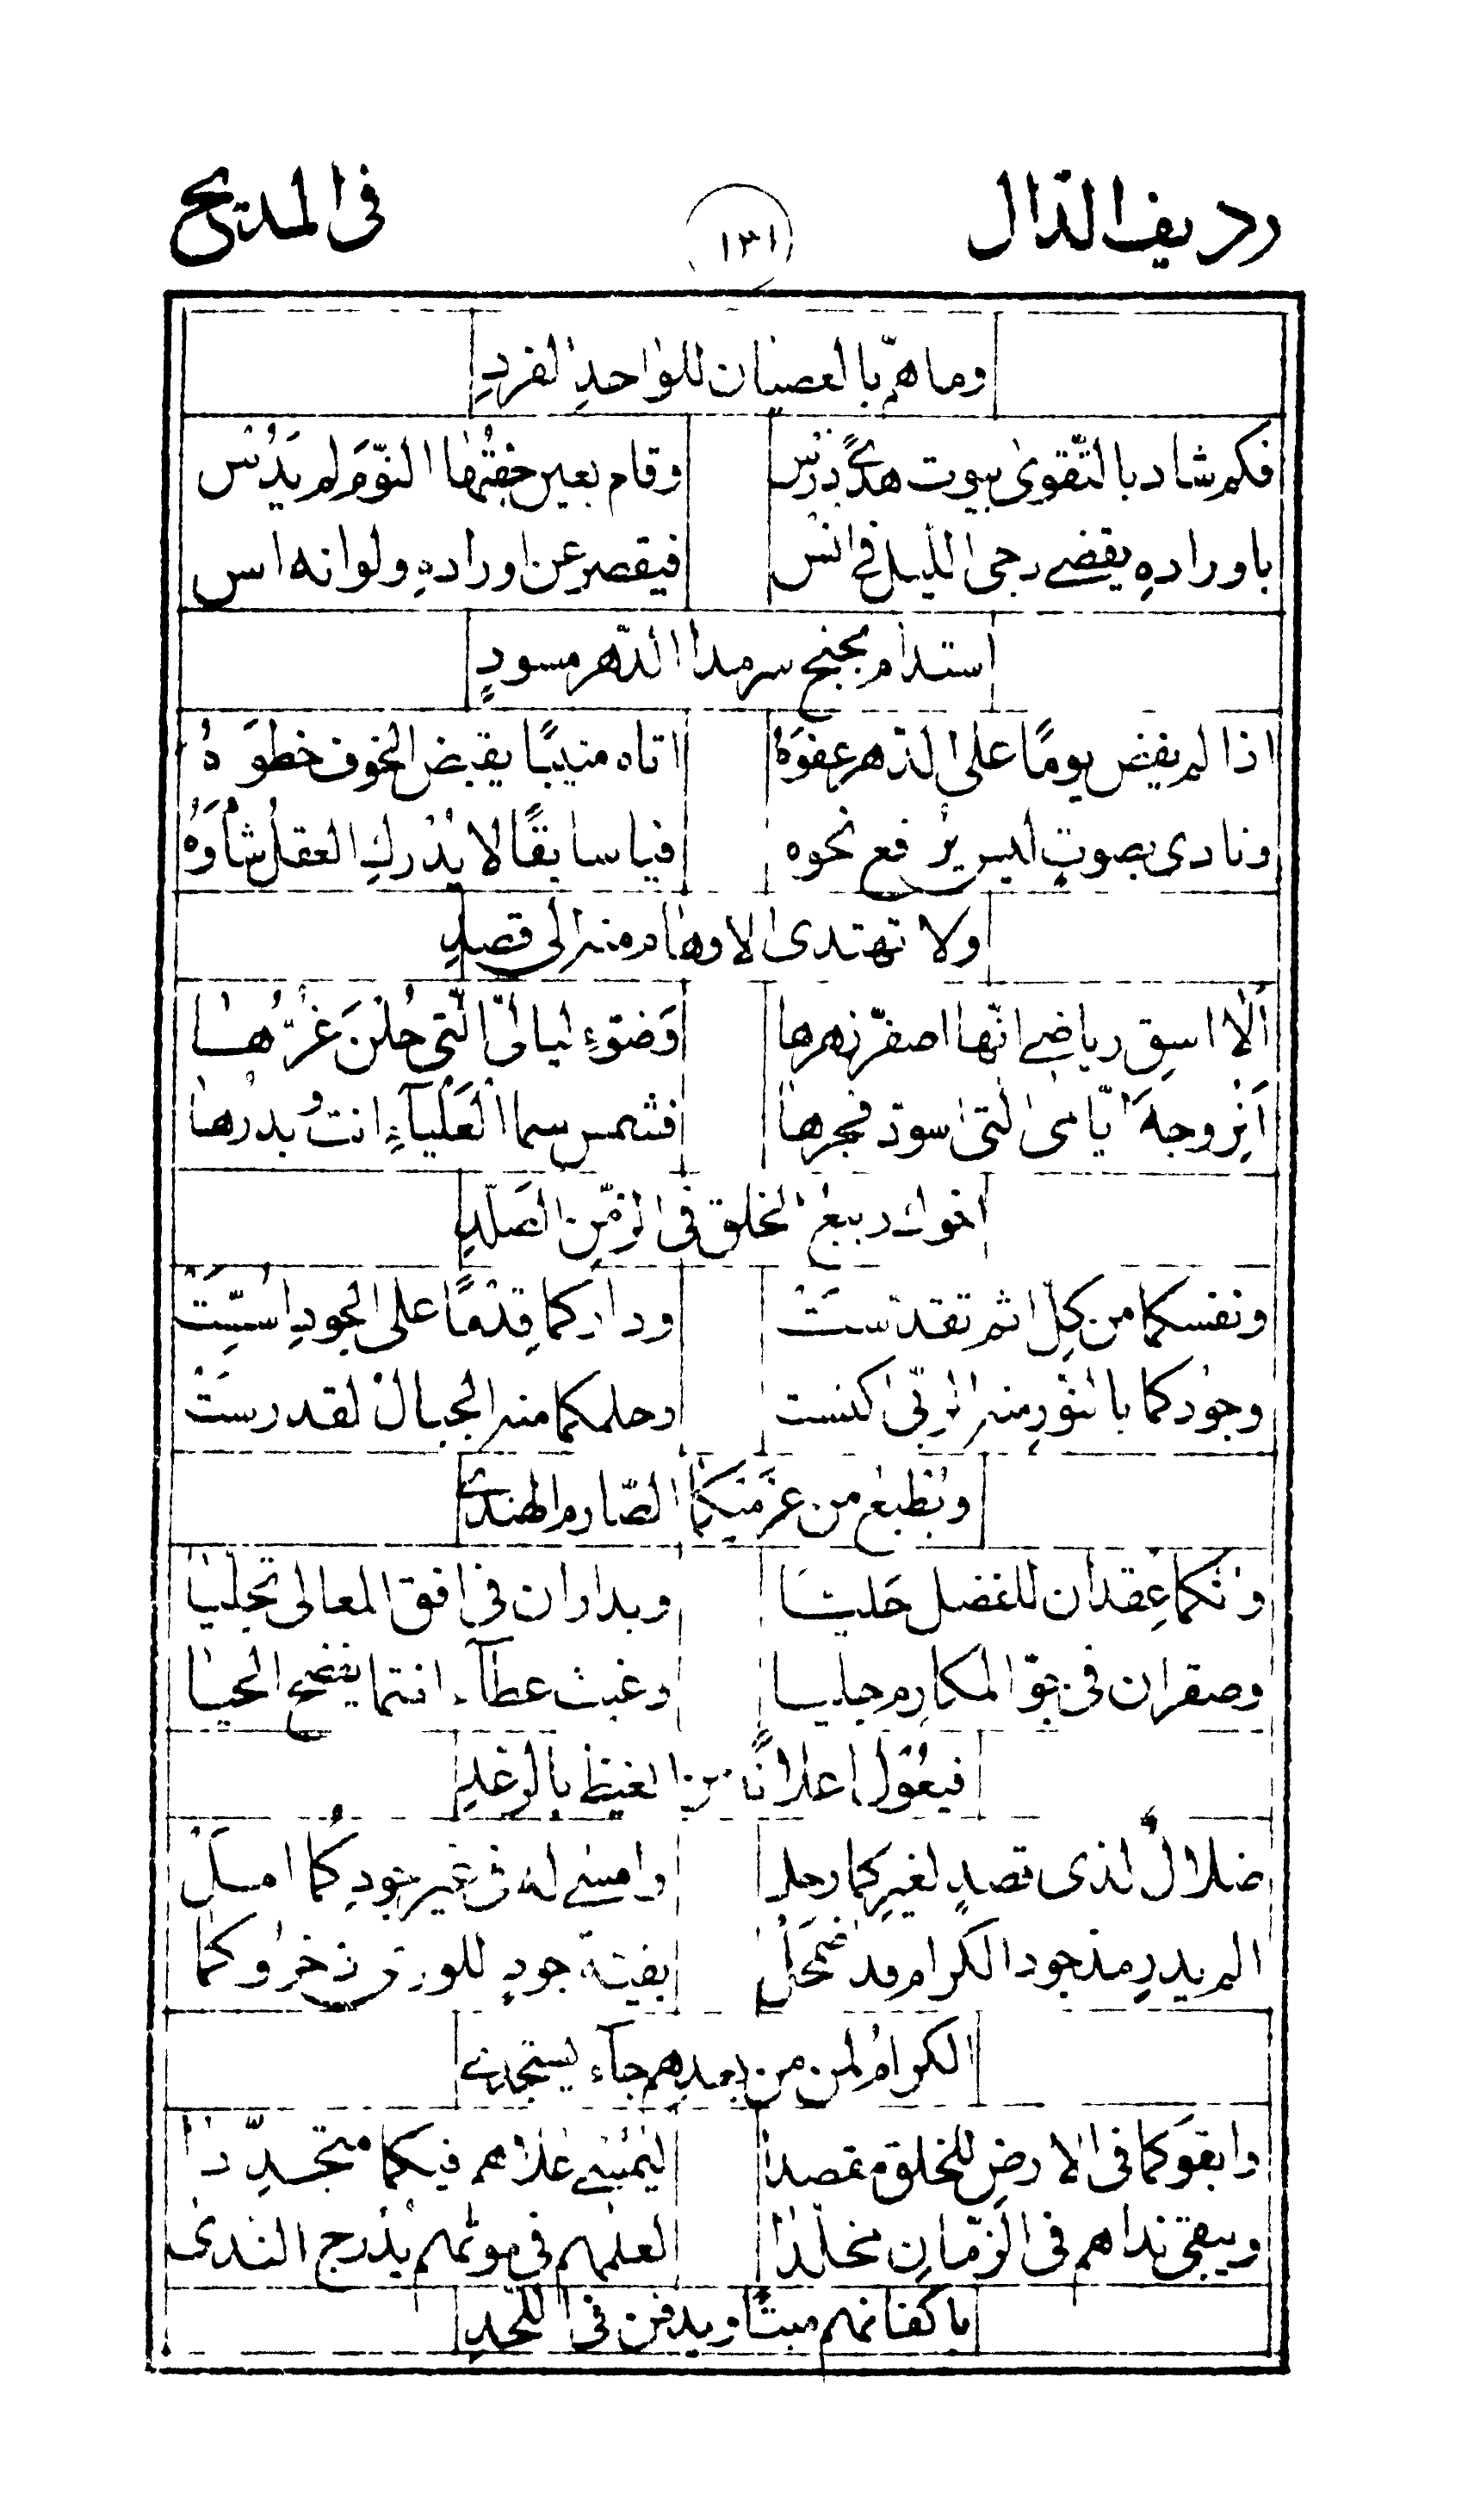 رديف الدال ١٣١ في المديح
وما همّ بالعصيان للواحدِ الفردِ
فكم شاد بالتّقوى بيوت هدًى دُرس وقام بعين جفنُها النّومَ لم يَدُس
باورادهِ يقضي دجى الليل في انس فيقصر عن اورادهِ ولو انه اس
استدام بجنح سرمدا الدّهر مسودِ
اذا لم يفض يومًا على الدهر عفوَهُ اتاه منيبًا يقبض الخوف خطوَهُ
ونادى بصوتٍ ليس يرفع نحوه فيا سابقًا لا يُدْركِ العقلُ شأوَهُ
ولا تهتدى الاوهام منه الى قصدِ
اَلا اسقِ رياضي انّها اصفرّ زهرها وَضوّءِ ليالىّ الّتى حُلْنَ غرُّها
اَنِرْ وجهَ ايّامى الّتى اسودّ فجرها فشمس سما العَلْياَءِ انت وبدرها
اخوك ربيع الخلق في الزمّنِ الصَلْدِ
ونفسكما من كلِّ اثم تقدّستْ وداركما قِدْمًا على الجودِ اسّسَتْ
وجودكما بالنّورِ منه الربى اكتست وحلمكما منه الجبال لقد رسَتْ
ويُطبع من عزمَيْكما الصّارم الهندي
وانكما عِقدان للفضل حَليَا وبدران في افق المعالى تجلّيَا
وصقران في جوّ المكارم جليا وغيث عطآء انتما يفضح الحيا
فيعْوِل اعلانًا من الغيظ بالرعْدِ
ضلالٌ لذى قصدٍ لغيرِكما رحل وامسى له في غير جودِكُما امَلْ
الم يدرِ مذ جود الكرام قد اضمحَلْ بقيّة جودٍ للورى ذخروكما
الكرام لمن من بعدهم جآء يستجدي
وابقوكما في الارض للخلق مقصدا ليُمْسي علاهم فيكما متجدّدا
ويبقى نداهم في الزّمانِ مخلّدا لعلمهم في موتهم يُدْرج الندى
باكفانهم ميتًا ويدفن في اللّحدِ